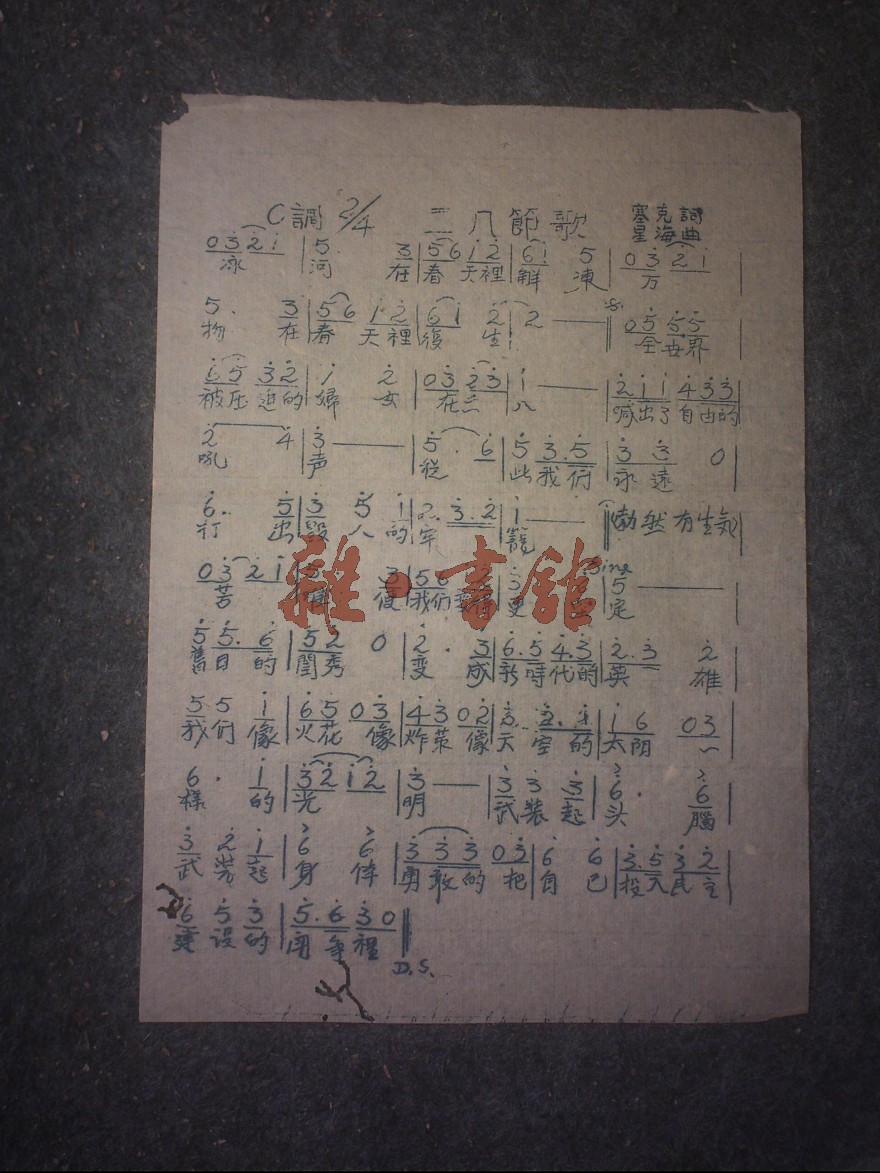 C調 2/4 三八節歌 塞克 詞
星海 曲
0 3 2 1 | 5. 3 | 5 6 1 2 | 6 1 5 | 0 3 2 1 |
冰 河 在 春 天 裡 解 凍 万
5. 3 | 5 6 1 2 | 6 1 2 | 2 — ‖ 0 5 5 5 |
物 在 春 天 裡 復 生 全世界
6 5 3 2 | 1 2 | 0 3 2 3 | 1 — | 2 1 1 4 3 3 |
被压迫的 婦 女 在三 八 喊出了自由的
2 4 | 3 — | 5. 6 | 5 3. 5 | 3 3 0 |
吼 声 從 此我们 永遠
6. 5 | 3 5 1 | 2 3. 2 | 1 — ‖ 勃然有生氣
打 出 毀人的 牢 籠
0 3 2 1
苦 使 我们 更 定
5 5. 6 | 5 2 0 | 2. 3 | 6. 5 4. 3 | 2. 3 2 |
舊日的 閨秀 变 成 新時代的 英 雄
5 5 1 | 6 5 0 3 | 4 3 0 2 | 1 6 0 3 |
我们像 火花 像 炸 像 天空的 太阴 一
6. 1 | 3 2 1 2 | 3 — | 3 3 3 | 6. 6 |
樣 的 光 明 武装起 头 腦
3 2 1 | 6 6 | 3 3 3 0 3 | 6 6 | 3 5 3 2 |
武装起 身 体 勇敢的 把 自 己 投入民主
6 5 3 | 5. 6 3 0 ‖
建设的 鬥争裡
D.S.
雜·書館